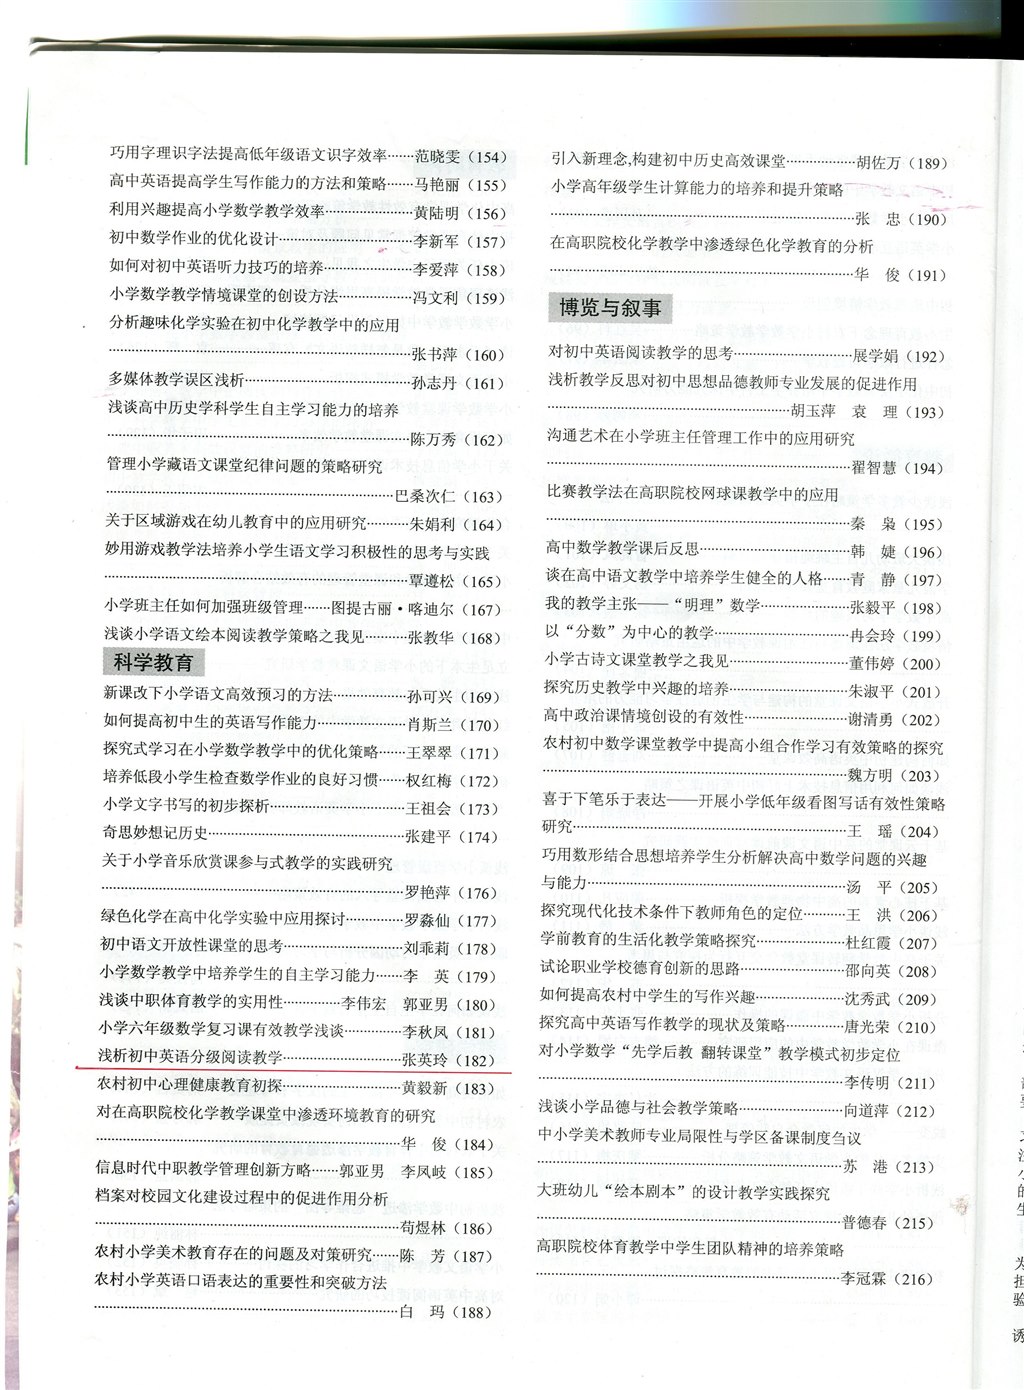 巧用字理识字法提高低年级语文识字效率……范晓雯（154）
高中英语提高学生写作能力的方法和策略……马艳丽（155）
利用兴趣提高小学数学教学效率……黄陆明（156）
初中数学作业的优化设计……李新军（157）
如何对初中英语听力技巧的培养……李爱萍（158）
小学数学教学情境课堂的创设方法……冯文利（159）
分析趣味化学实验在初中化学教学中的应用
……张书萍（160）
多媒体教学误区浅析……孙志丹（161）
浅谈高中历史学科学生自主学习能力的培养
……陈万秀（162）
管理小学藏语文课堂纪律问题的策略研究
……巴桑次仁（163）
关于区域游戏在幼儿教育中的应用研究……朱娟利（164）
妙用游戏教学法培养小学生语文学习积极性的思考与实践
……覃遵松（165）
小学班主任如何加强班级管理……图提古丽·喀迪尔（167）
浅谈小学语文绘本阅读教学策略之我见……张教华（168）
科学教育
新课改下小学语文高效预习的方法……孙可兴（169）
如何提高初中生的英语写作能力……肖斯兰（170）
探究式学习在小学数学教学中的优化策略……王翠翠（171）
培养低段小学生检查数学作业的良好习惯……权红梅（172）
小学文字书写的初步探析……王祖会（173）
奇思妙想记历史……张建平（174）
关于小学音乐欣赏课参与式教学的实践研究
……罗艳萍（176）
绿色化学在高中化学实验中应用探讨……罗淼仙（177）
初中语文开放性课堂的思考……刘乖莉（178）
小学数学教学中培养学生的自主学习能力……李　英（179）
浅谈中职体育教学的实用性……李伟宏　郭亚男（180）
小学六年级数学复习课有效教学浅谈……李秋凤（181）
浅析初中英语分级阅读教学……张英玲（182）
农村初中心理健康教育初探……黄毅新（183）
对在高职院校化学教学课堂中渗透环境教育的研究
……华　俊（184）
信息时代中职教学管理创新方略……郭亚男　李凤岐（185）
档案对校园文化建设过程中的促进作用分析
……苟煜林（186）
农村小学美术教育存在的问题及对策研究……陈　芳（187）
农村小学英语口语表达的重要性和突破方法
……白　玛（188）
引入新理念,构建初中历史高效课堂……胡佐万（189）
小学高年级学生计算能力的培养和提升策略
……张　忠（190）
在高职院校化学教学中渗透绿色化学教育的分析
……华　俊（191）
博览与叙事
对初中英语阅读教学的思考……展学娟（192）
浅析教学反思对初中思想品德教师专业发展的促进作用
……胡玉萍　袁　理（193）
沟通艺术在小学班主任管理工作中的应用研究
……翟智慧（194）
比赛教学法在高职院校网球课教学中的应用
……秦　枭（195）
高中数学教学课后反思……韩　婕（196）
谈在高中语文教学中培养学生健全的人格……青　静（197）
我的教学主张——“明理”数学……张毅平（198）
以“分数”为中心的教学……冉会玲（199）
小学古诗文课堂教学之我见……董伟婷（200）
探究历史教学中兴趣的培养……朱淑平（201）
高中政治课情境创设的有效性……谢清勇（202）
农村初中数学课堂教学中提高小组合作学习有效策略的探究
……魏方明（203）
喜于下笔乐于表达——开展小学低年级看图写话有效性策略
研究……王　瑶（204）
巧用数形结合思想培养学生分析解决高中数学问题的兴趣
与能力……汤　平（205）
探究现代化技术条件下教师角色的定位……王　洪（206）
学前教育的生活化教学策略探究……杜红霞（207）
试论职业学校德育创新的思路……邵向英（208）
如何提高农村中学生的写作兴趣……沈秀武（209）
探究高中英语写作教学的现状及策略……唐光荣（210）
对小学数学“先学后教 翻转课堂”教学模式初步定位
……李传明（211）
浅谈小学品德与社会教学策略……向道萍（212）
中小学美术教师专业局限性与学区备课制度刍议
……苏　港（213）
大班幼儿“绘本剧本”的设计教学实践探究
……普德春（215）
高职院校体育教学中学生团队精神的培养策略
……李冠霖（216）